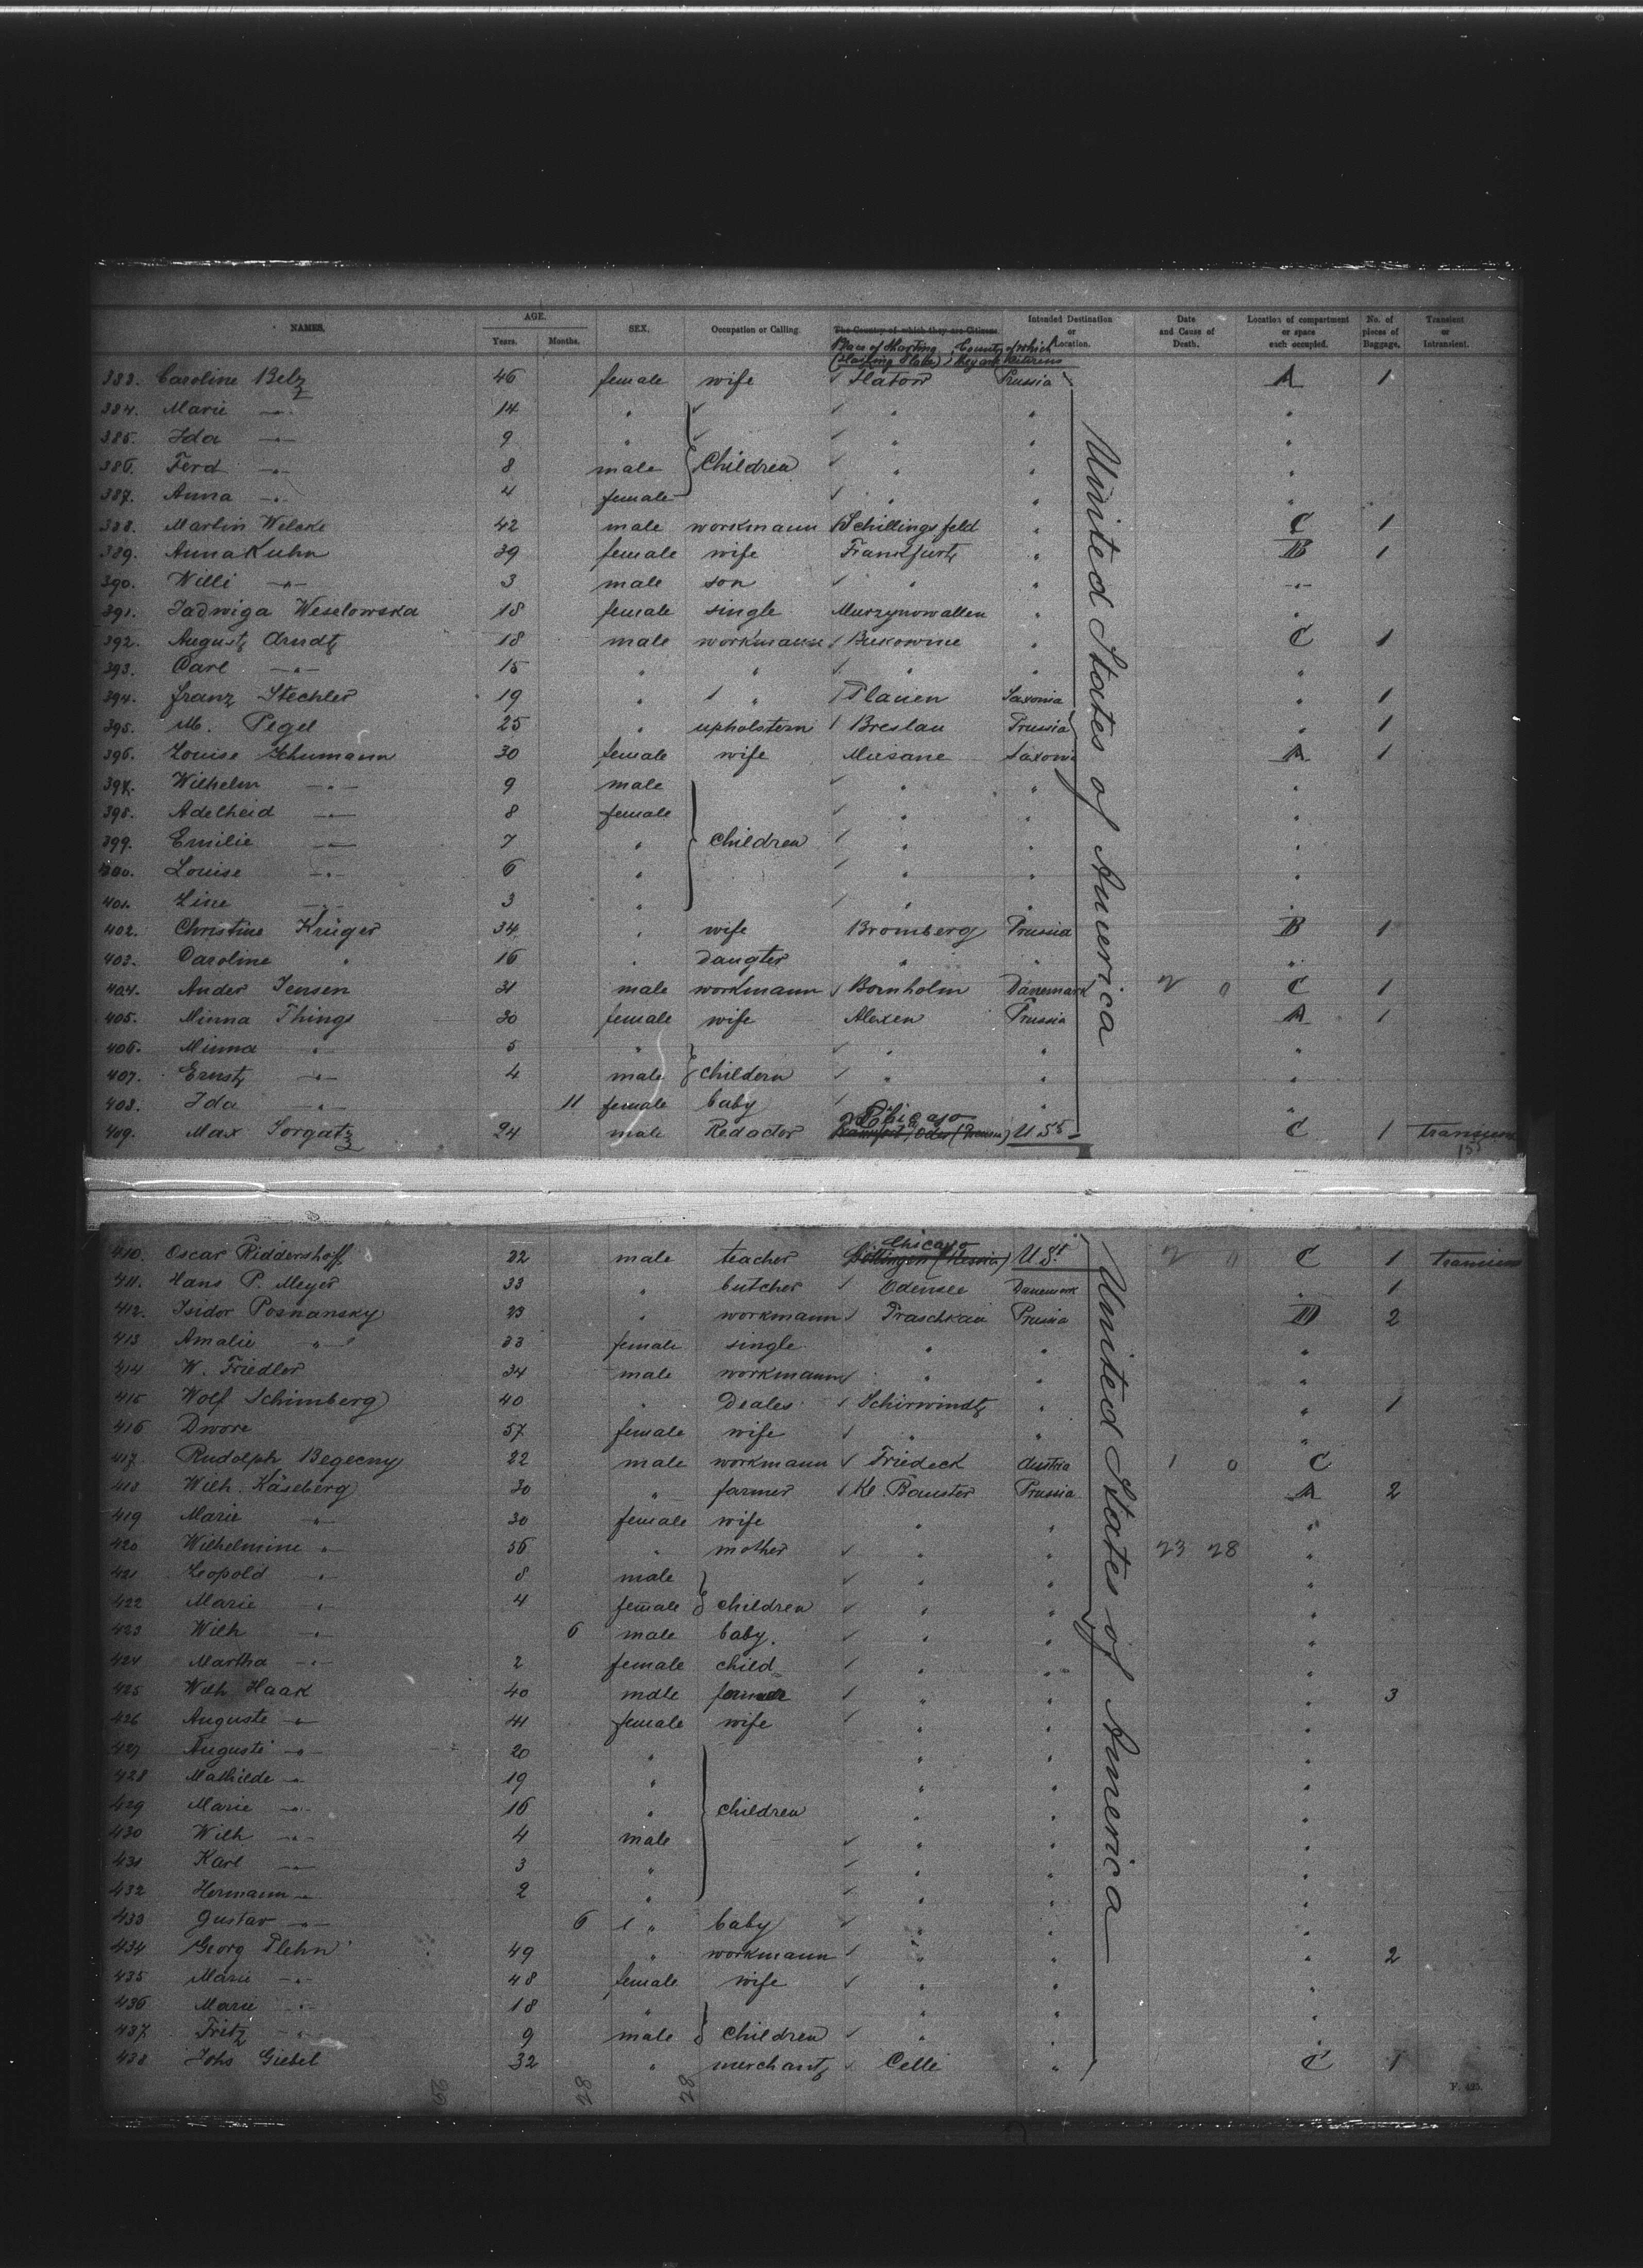 NAMES. AGE. SEX. Occupation or Calling. The Country of which they are Citizens. Intended Destination or Location. Date and Cause of Death. Location of compartment or space each occupied. No. of pieces of Baggage. Transient or Intransient.
Years. Months. Place of Starting (Starting Place) Country of which they are Citizens
383. Caroline Belz 46 female wife Flatow Prussia A 1
384. Marie -"- 14 " " " "
385. Ida -"- 9 " " " "
386. Ferd -"- 8 male Children " " "
387. Anna -"- 4 female " " "
388. Martin Welcke 42 male workmann Schillingsfeld " C 1
389. Anna Kuhn 39 female wife Frankfurt " B 1
390. Willi -"- 3 male son " " -"-
391. Jadwiga Weselowska 18 female single Murzynowallen " "
392. August Arndt 18 male workmann Bukowine " C 1
393. Carl -"- 15 " " " " "
394. Franz Stechler 19 " " Plauen Saxonia " 1
395. M. Pegel 25 " upholstern Breslau Prussia " 1
396. Louise Schumann 30 female wife Meesane Saxonia A 1
397. Wilhelm -"- 9 male " " "
398. Adelheid -"- 8 female " " "
399. Emilie -"- 7 " children " " "
400. Louise -"- 6 " " " "
401. Line -"- 3 " " " "
402. Christine Krüger 34 " wife Bromberg Prussia B 1
403. Caroline " 16 " daugter " " "
404. Ander Jensen 31 male workmann Bornholm Dänemark 2 0 C 1
405. Minna Things 30 female wife Alexen Prussia A 1
406. Minna " 5 " " " "
407. Ernst -"- 4 male childern " " "
408. Ida -"- 11 female baby " "
409. Max Sorgatz 24 male Redactor Chicago U St C 1 transient
United States of America
410. Oscar Riddershoff 22 male teacher Chicago U.St. 2 0 C 1 transient
411. Hans P. Meyer 33 " butcher Odensee Danemark " 1
412. Isidor Posnansky 23 " workmann Praschkau Prussia D 2
413 Amalie " 33 female single " " "
414 W. Friedler 34 male workmann " " "
415 Wolf Schimberg 40 " Dealer Schirwindt " " 1
416 Dwore 57 female wife " " "
417 Rudolph Begecny 22 male workmann Friedeck Austria 1 0 C
418 Wilh. Käseberg 30 " farmer Kl. Bauster Prussia A 2
419 Marie " 30 female wife " " "
420 Wilhelmine " 56 " mother " " 23 28 "
421 Leopold " 8 male " " "
422 Marie " 4 female children " " "
423 Wilh " 6 male baby. " " "
424 Martha -"- 2 female child " " "
425 Wilh Haak 40 male farmer " " " 3
426 Auguste -"- 41 female wife " " "
427 Auguste -"- 20 " " " "
428 Mathilde -"- 19 " " " "
429 Marie -"- 16 " children " " "
430 Wilh -"- 4 male " " "
431 Karl -"- 3 " " " "
432 Hermann -"- 2 " " " "
433 Gustav -"- 6 " baby " " "
434 Georg Plehn 49 " workmann " " " 2
435 Marie -"- 48 female wife " " "
436 Marie -"- 18 " " " "
437 Fritz -"- 9 male children " " "
438 Johs Giebel 32 " merchant Celle " C 1
United States of America
29 28 28
F. 425.